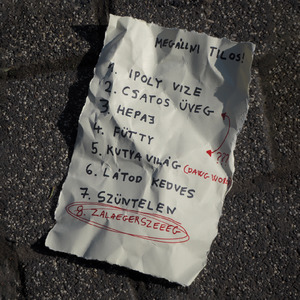 MEGÁLLNI TILOS!
1. IPOLY VIZE
2. CSATOS ÜVEG
3. HEPAJ
4. FÜTTY
???
5. KUTYA VILÁG (DAWG WORLD)
6. LÁTOD KEDVES
7. SZÜNTELEN
8. ZALAEGERSZEEEG